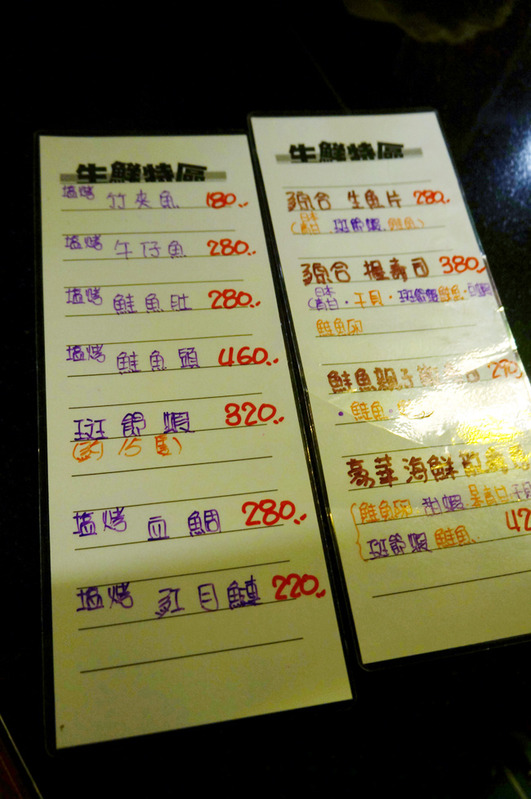 生鮮特區
塩烤 竹夾魚 180..
塩烤 午仔魚 280..
塩烤 鮭魚肚 280..
塩烤 鮭魚頭 460..
斑節蝦 320..
(約15尾)
塩烤 血鯛 280..
塩烤 紅目鰱 220..
生鮮特區
綜合 生魚片 280..
斑節蝦 鮭魚)
綜合 握壽司 380
干貝·斑節蝦 鮭魚
鮭魚卵
鮭魚親子
·鮭魚
豪華海鮮
(鮭魚卵 甜蝦
斑節蝦 鮭魚